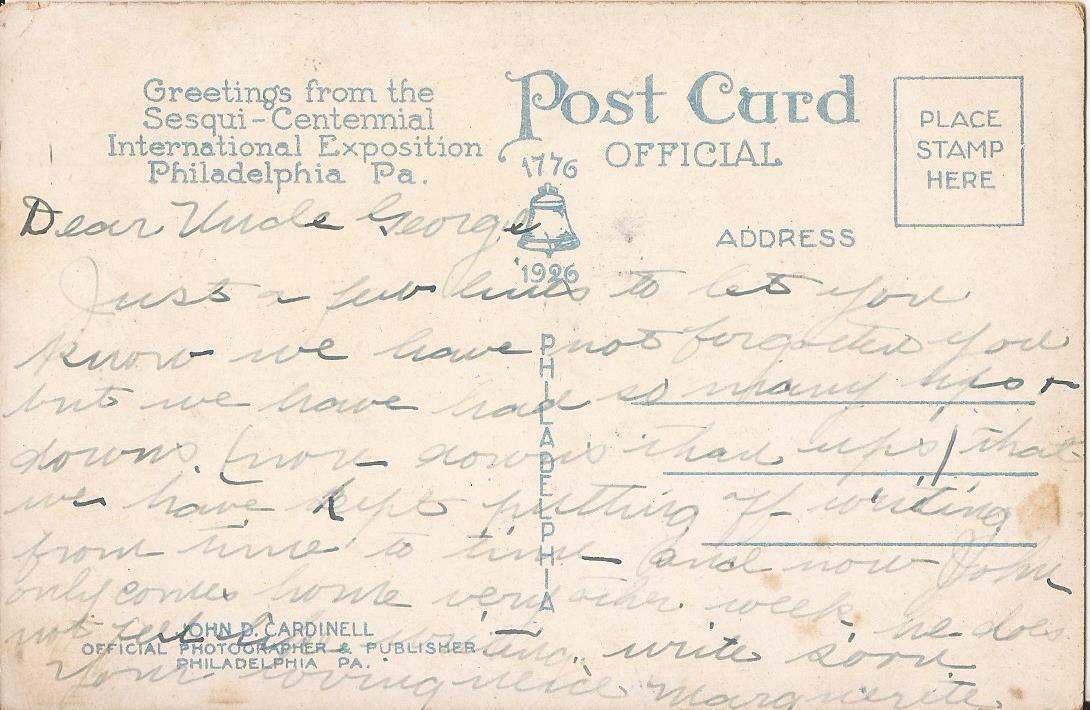 Greetings from the
Sesqui-Centennial
International Exposition
Philadelphia Pa.
Post Card
OFFICIAL
1776
1926
PLACE
STAMP
HERE
ADDRESS
PHILADELPHIA
Dear Uncle George
Just a few lines to let you
know we have not forgotten you
but we have had so many ups &
downs. (more downs than ups) that
we have kept putting off writing
from time to time and now John
only comes home every other week he does
not feel like writing. write soon
Your loving neice Marguerite.
JOHN D. CARDINELL
OFFICIAL PHOTOGRAPHER & PUBLISHER
PHILADELPHIA PA.